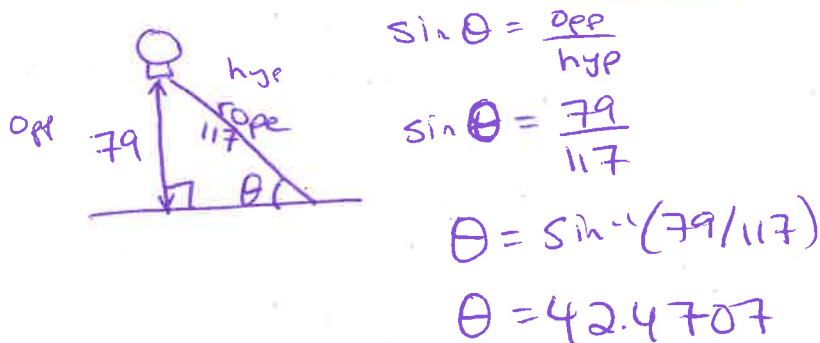 hyp
opp
79
rope
117
θ
sin θ = opp/hyp
sin θ = 79/117
θ = sin⁻¹(79/117)
θ = 42.4707